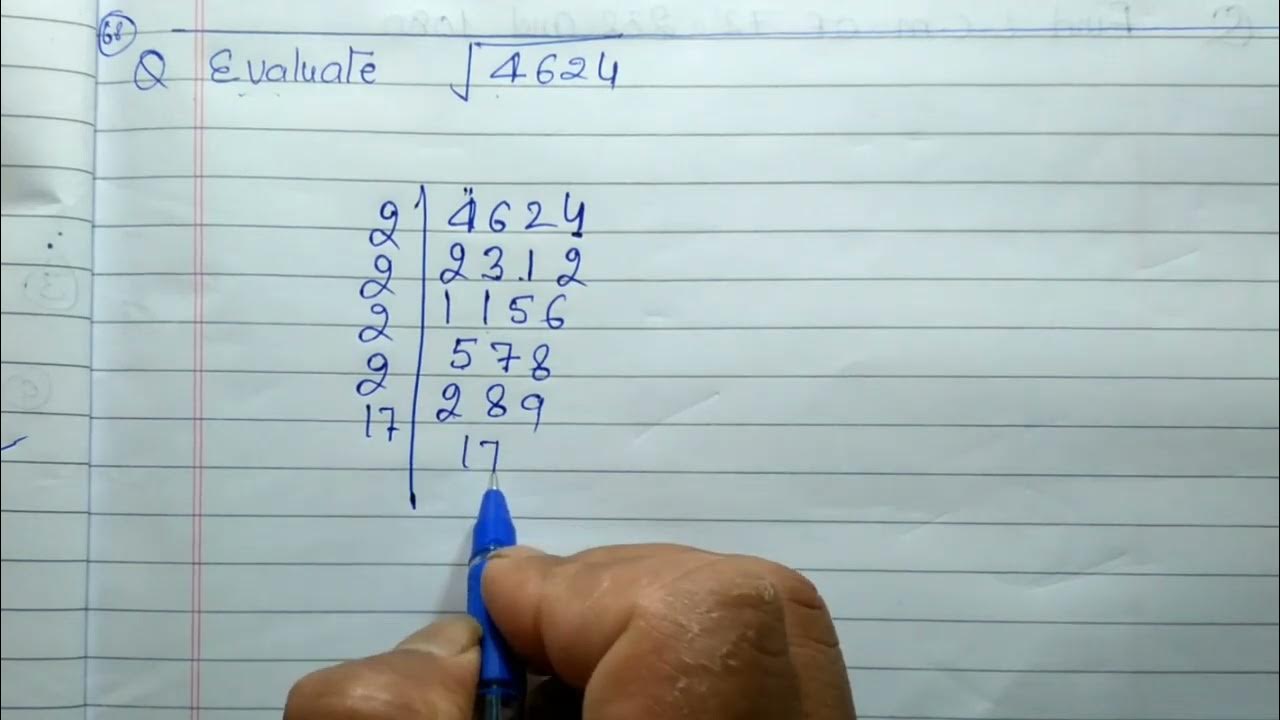 68
Q Evaluate √4624
2 | 4624
2 | 2312
2 | 1156
2 | 578
17 | 289
17